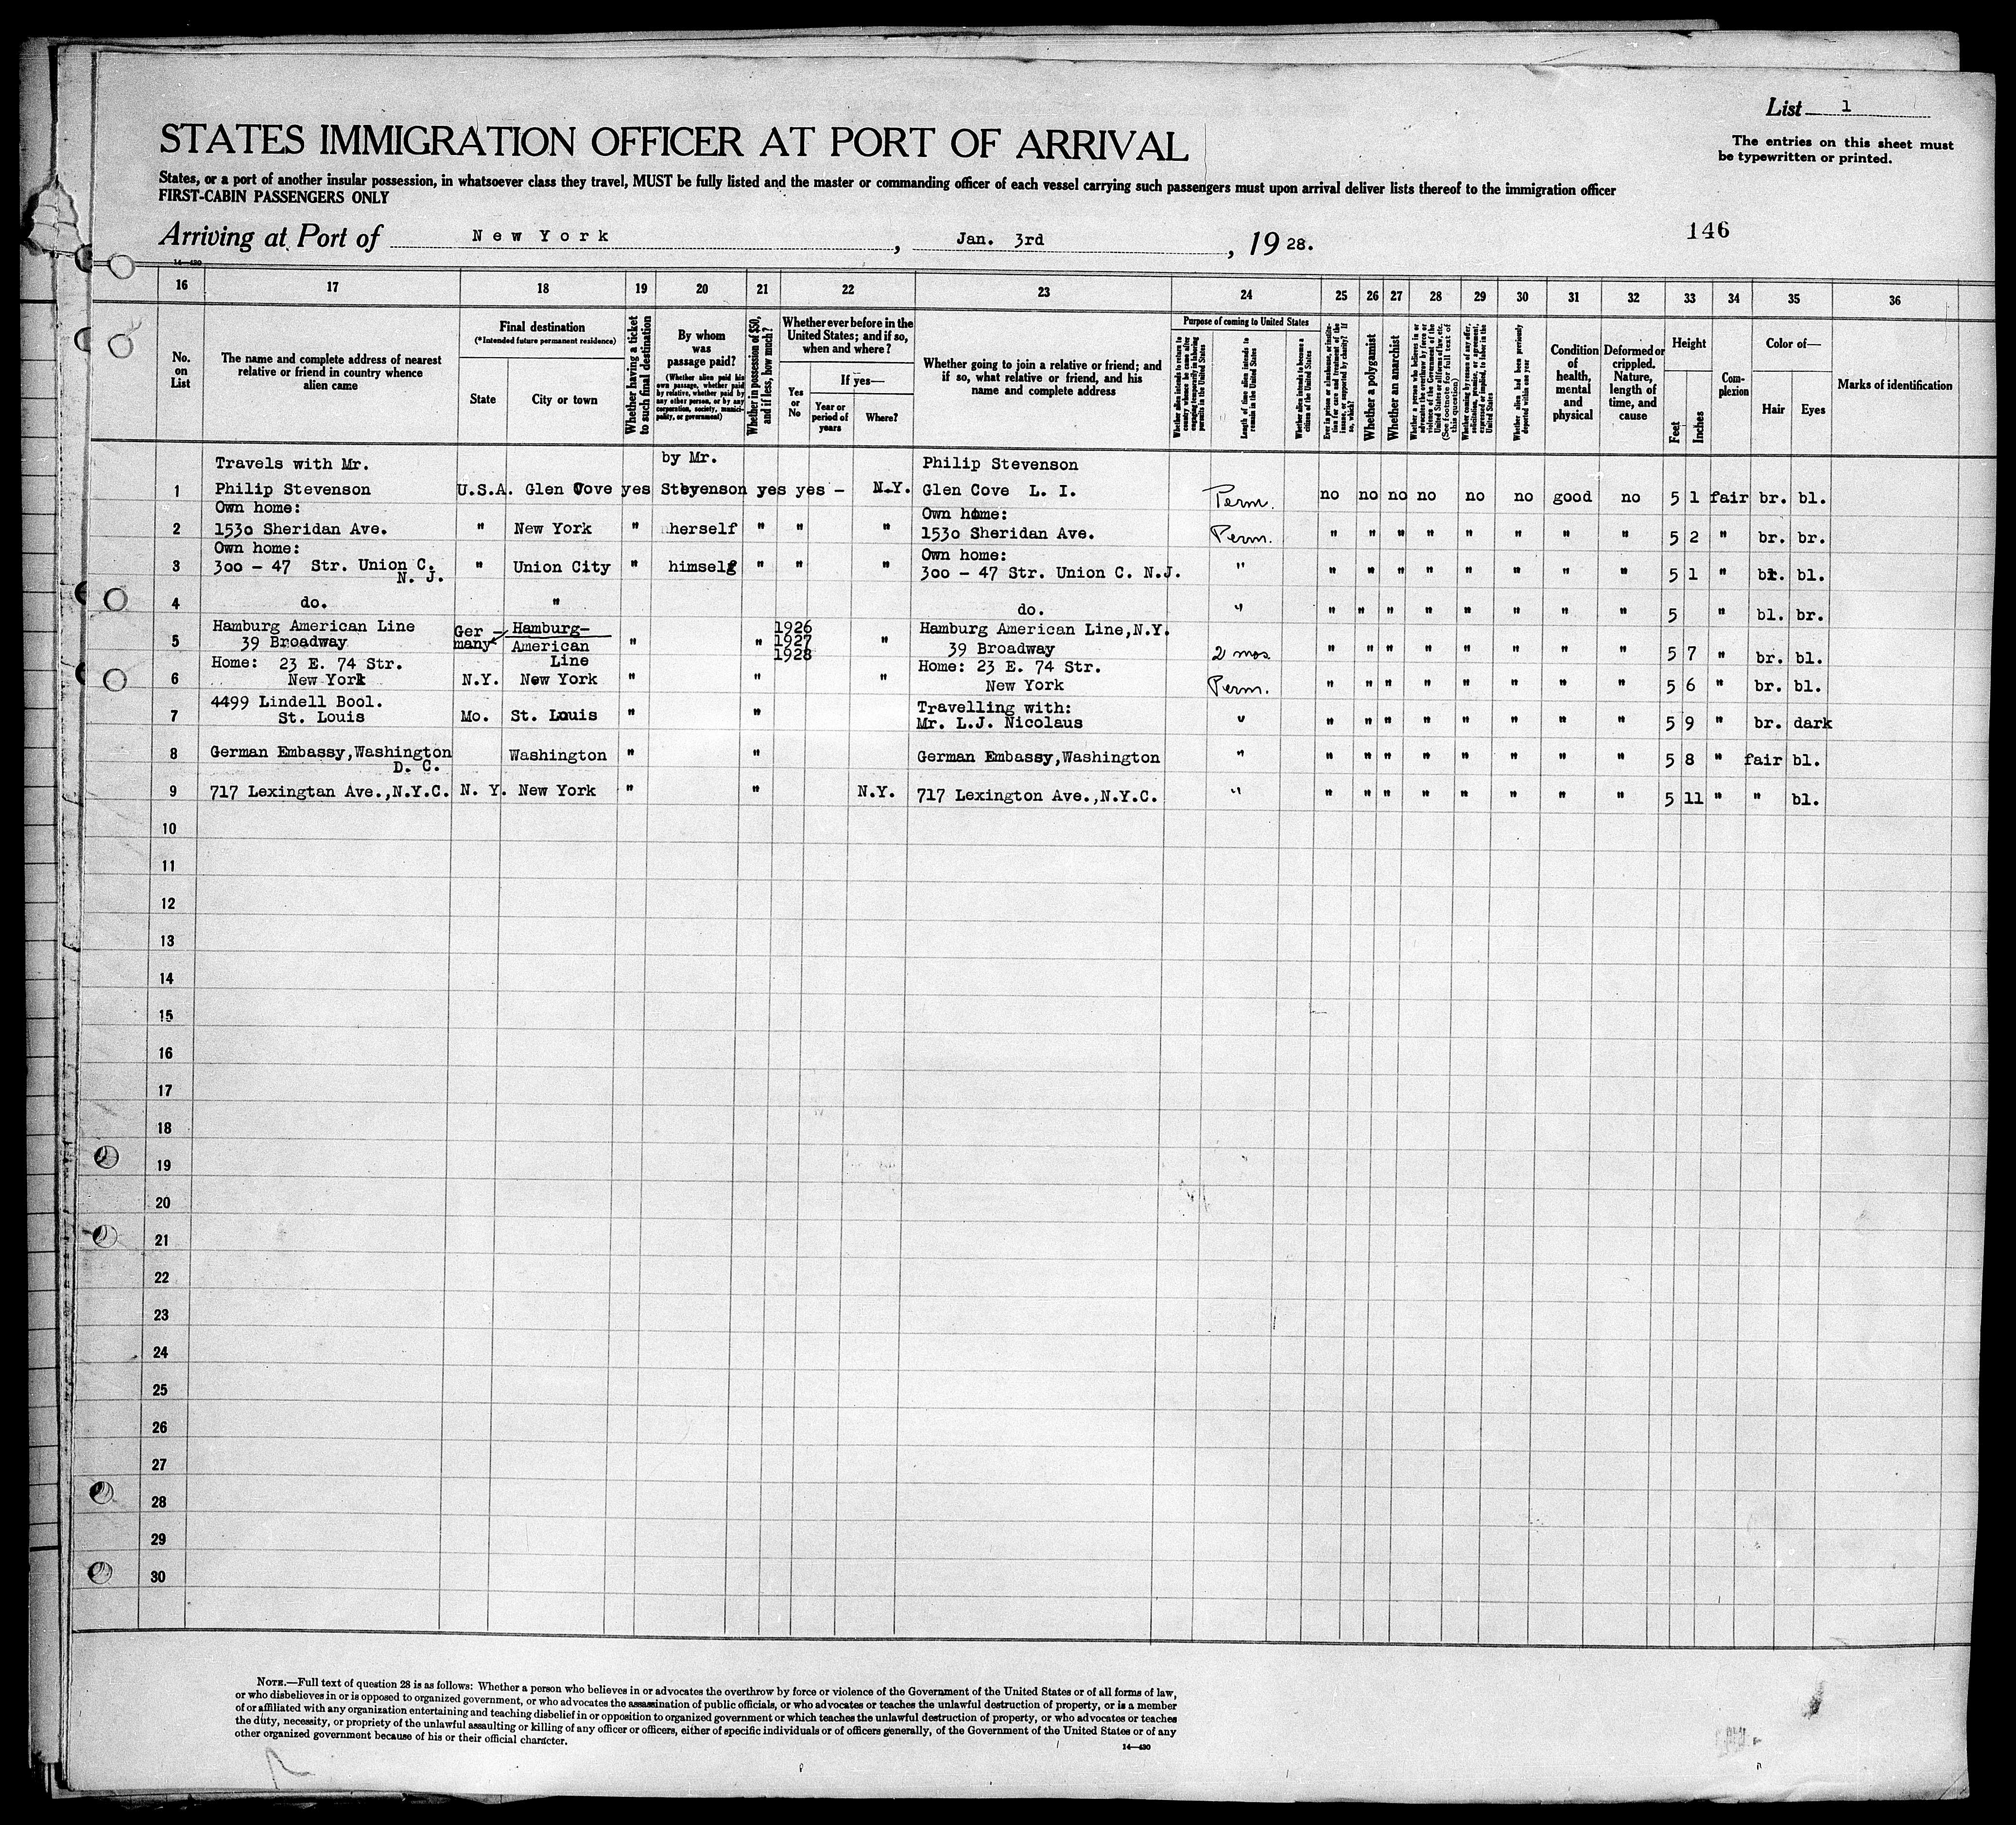 List 1
The entries on this sheet must
be typewritten or printed.
STATES IMMIGRATION OFFICER AT PORT OF ARRIVAL
States, or a port of another insular possession, in whatsoever class they travel, MUST be fully listed and the master or commanding officer of each vessel carrying such passengers must upon arrival deliver lists thereof to the immigration officer
FIRST-CABIN PASSENGERS ONLY
Arriving at Port of New York, Jan. 3rd, 19 28.
146
14—430
16 17 18 19 20 21 22 23 24 25 26 27 28 29 30 31 32 33 34 35 36
No. on List
The name and complete address of nearest relative or friend in country whence alien came
Final destination
(*Intended future permanent residence)
State
City or town
Whether having a ticket to such final destination
By whom was passage paid?
(Whether alien paid his own passage, whether paid by relative, whether paid by any other person, or by any corporation, society, municipality, or government)
Whether in possession of $50, and if less, how much?
Whether ever before in the United States; and if so, when and where?
Yes or No
If yes—
Year or period of years
Where?
Whether going to join a relative or friend; and if so, what relative or friend, and his name and complete address
Purpose of coming to United States
Whether alien intends to return to country whence he came after engaging temporarily in laboring pursuits in the United States
Length of time alien intends to remain in the United States
Whether alien intends to become a citizen of the United States
Ever in prison or almshouse, or institution for care and treatment of the insane, or supported by charity? If so, which?
Whether a polygamist
Whether an anarchist
Whether a person who believes in or advocates the overthrow by force or violence of the Government of the United States or all forms of law, etc. (See footnote for full text of this question)
Whether coming by reason of any offer, solicitation, promise, or agreement, expressed or implied, to labor in the United States
Whether alien had been previously deported within one year
Condition of health, mental and physical
Deformed or crippled. Nature, length of time, and cause
Height
Feet
Inches
Com-plexion
Color of—
Hair
Eyes
Marks of identification
Travels with Mr. by Mr. Philip Stevenson
1 Philip Stevenson U.S.A. Glen Cove yes Stevenson yes yes – N.Y. Glen Cove L. I. Perm. no no no no no no good no 5 1 fair br. bl.
Own home: Own home:
2 1530 Sheridan Ave. " New York " herself " " " 1530 Sheridan Ave. Perm. " " " " " " " " 5 2 " br. br.
Own home: Own home:
3 300 – 47 Str. Union C. " Union City " himself " " " 300 – 47 Str. Union C. N.J. " " " " " " " " " 5 1 " br. bl.
N. J.
4 do. " do. " " " " " " " " " 5 " bl. br.
Hamburg American Line Ger – Hamburg– 1926 Hamburg American Line,N.Y.
5 39 Broadway many American " " 1927 " 39 Broadway 2 mos " " " " " " " " 5 7 " br. bl.
Line 1928
Home: 23 E. 74 Str. Home: 23 E. 74 Str.
6 New York N.Y. New York " " " New York Perm. " " " " " " " " 5 6 " br. bl.
4499 Lindell Bool. Travelling with:
7 St. Louis Mo. St. Louis " " Mr. L.J. Nicolaus " " " " " " " " " 5 9 " br. dark
8 German Embassy,Washington Washington " " German Embassy,Washington " " " " " " " " " 5 8 " fair bl.
D. C.
9 717 Lexingtan Ave.,N.Y.C. N. Y. New York " " N.Y. 717 Lexington Ave.,N.Y.C. " " " " " " " " " 5 11 " " bl.
10
11
12
13
14
15
16
17
18
19
20
21
22
23
24
25
26
27
28
29
30
NOTE.—Full text of question 28 is as follows: Whether a person who believes in or advocates the overthrow by force or violence of the Government of the United States or of all forms of law,
or who disbelieves in or is opposed to organized government, or who advocates the assassination of public officials, or who advocates or teaches the unlawful destruction of property, or is a member
of or affiliated with any organization entertaining and teaching disbelief in or opposition to organized government or which teaches the unlawful destruction of property, or who advocates or teaches
the duty, necessity, or propriety of the unlawful assaulting or killing of any officer or officers, either of specific individuals or of officers generally, of the Government of the United States or of any
other organized government because of his or their official character.
14—430